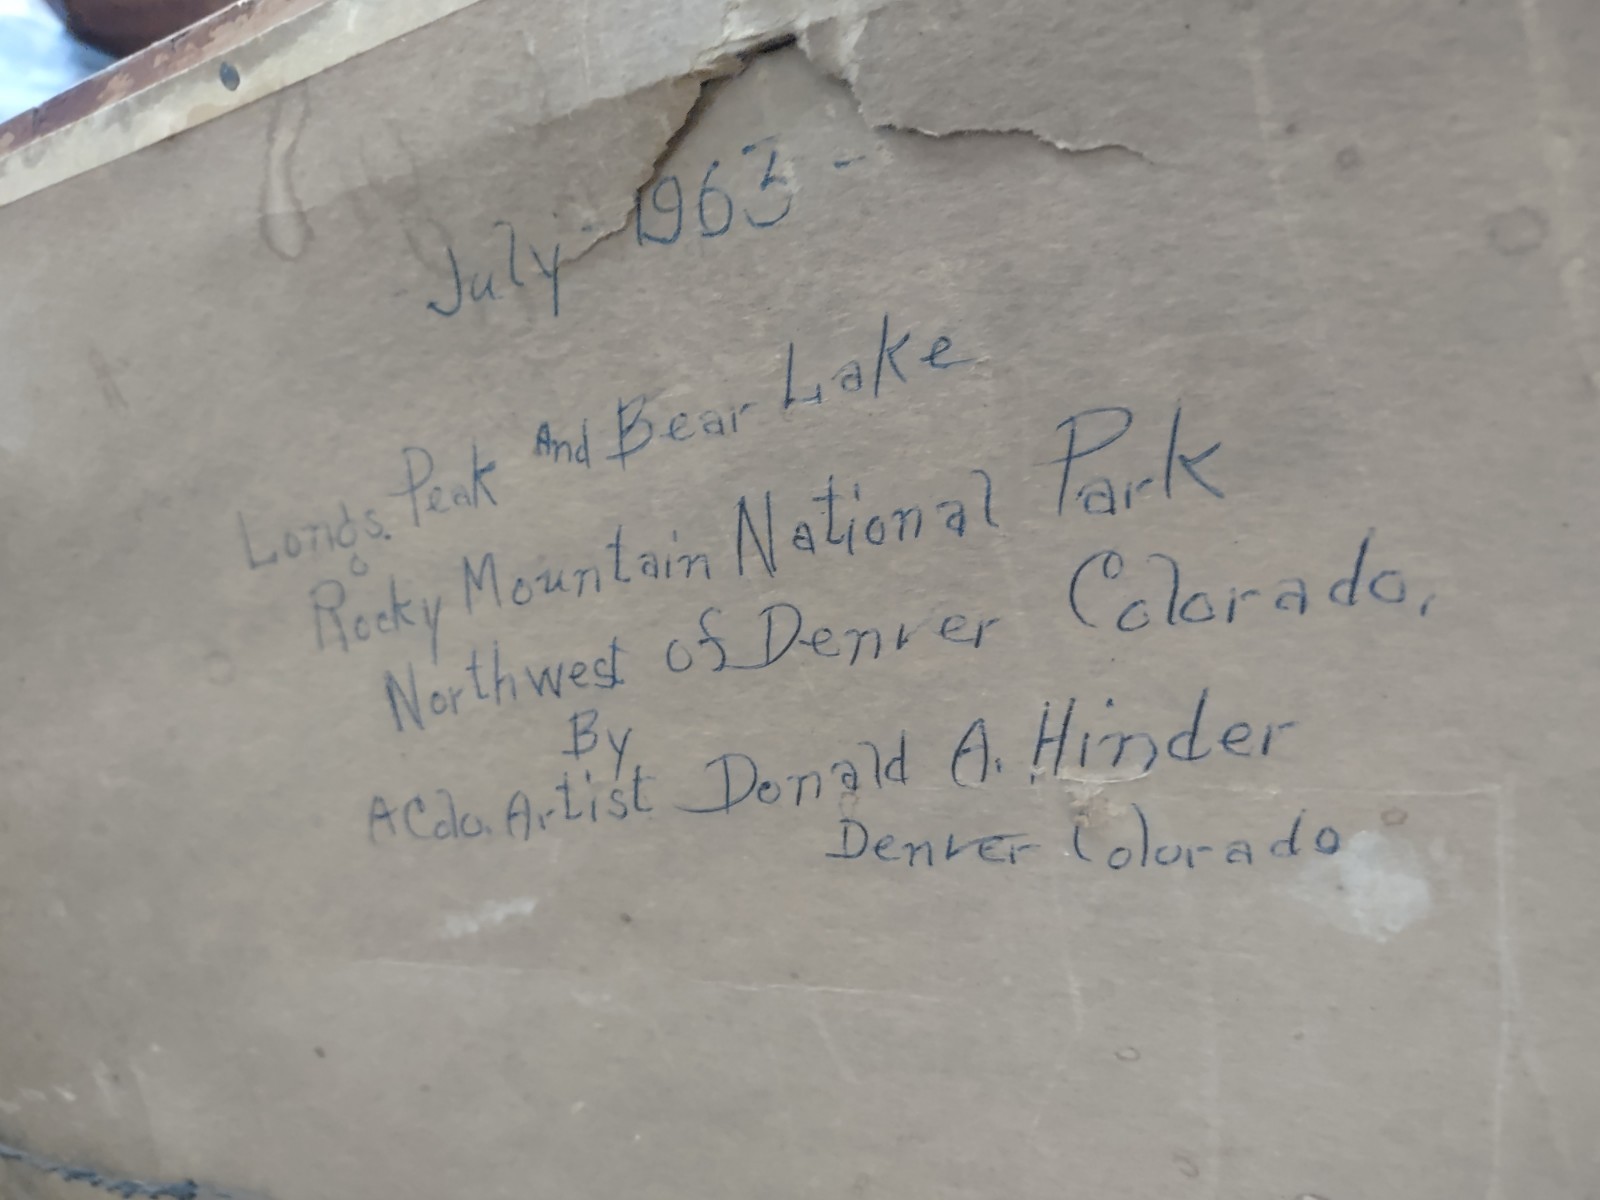 July - 1963 -
Longs. Peak And Bear Lake
Rocky Mountain National Park
Northwest of Denver Colorado.
By
A Colo. Artist Donald A. Hinder
Denver Colorado